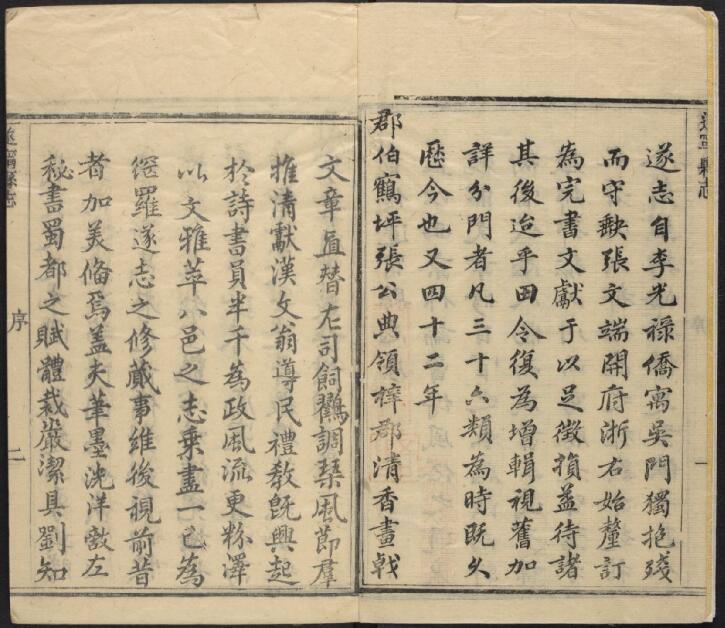 遂志自李光祿僑寓吳門獨抱殘
而守缺張文端開府浙右始釐訂
為完書文獻于以足徵損益待諸
其後迨乎田令復為增輯視舊加
詳分門者凡三十六類為時既久
歷今也又四十二年
郡伯鶴坪張公典領梓郡清香畫戟
遂寧縣志
一
文章直替左司飼鸛調琴風節羣
推清獻漢文翁導民禮教既興起
於詩書員半千為政風流更粉澤
以文雅萃八邑之志乘盡一己為
網羅遂志之修蕆事維後視前昔
者加美備焉蓋夫筆墨洸洋敵左
秘書蜀都之賦體裁嚴潔具劉知
遂寧縣志
序
二